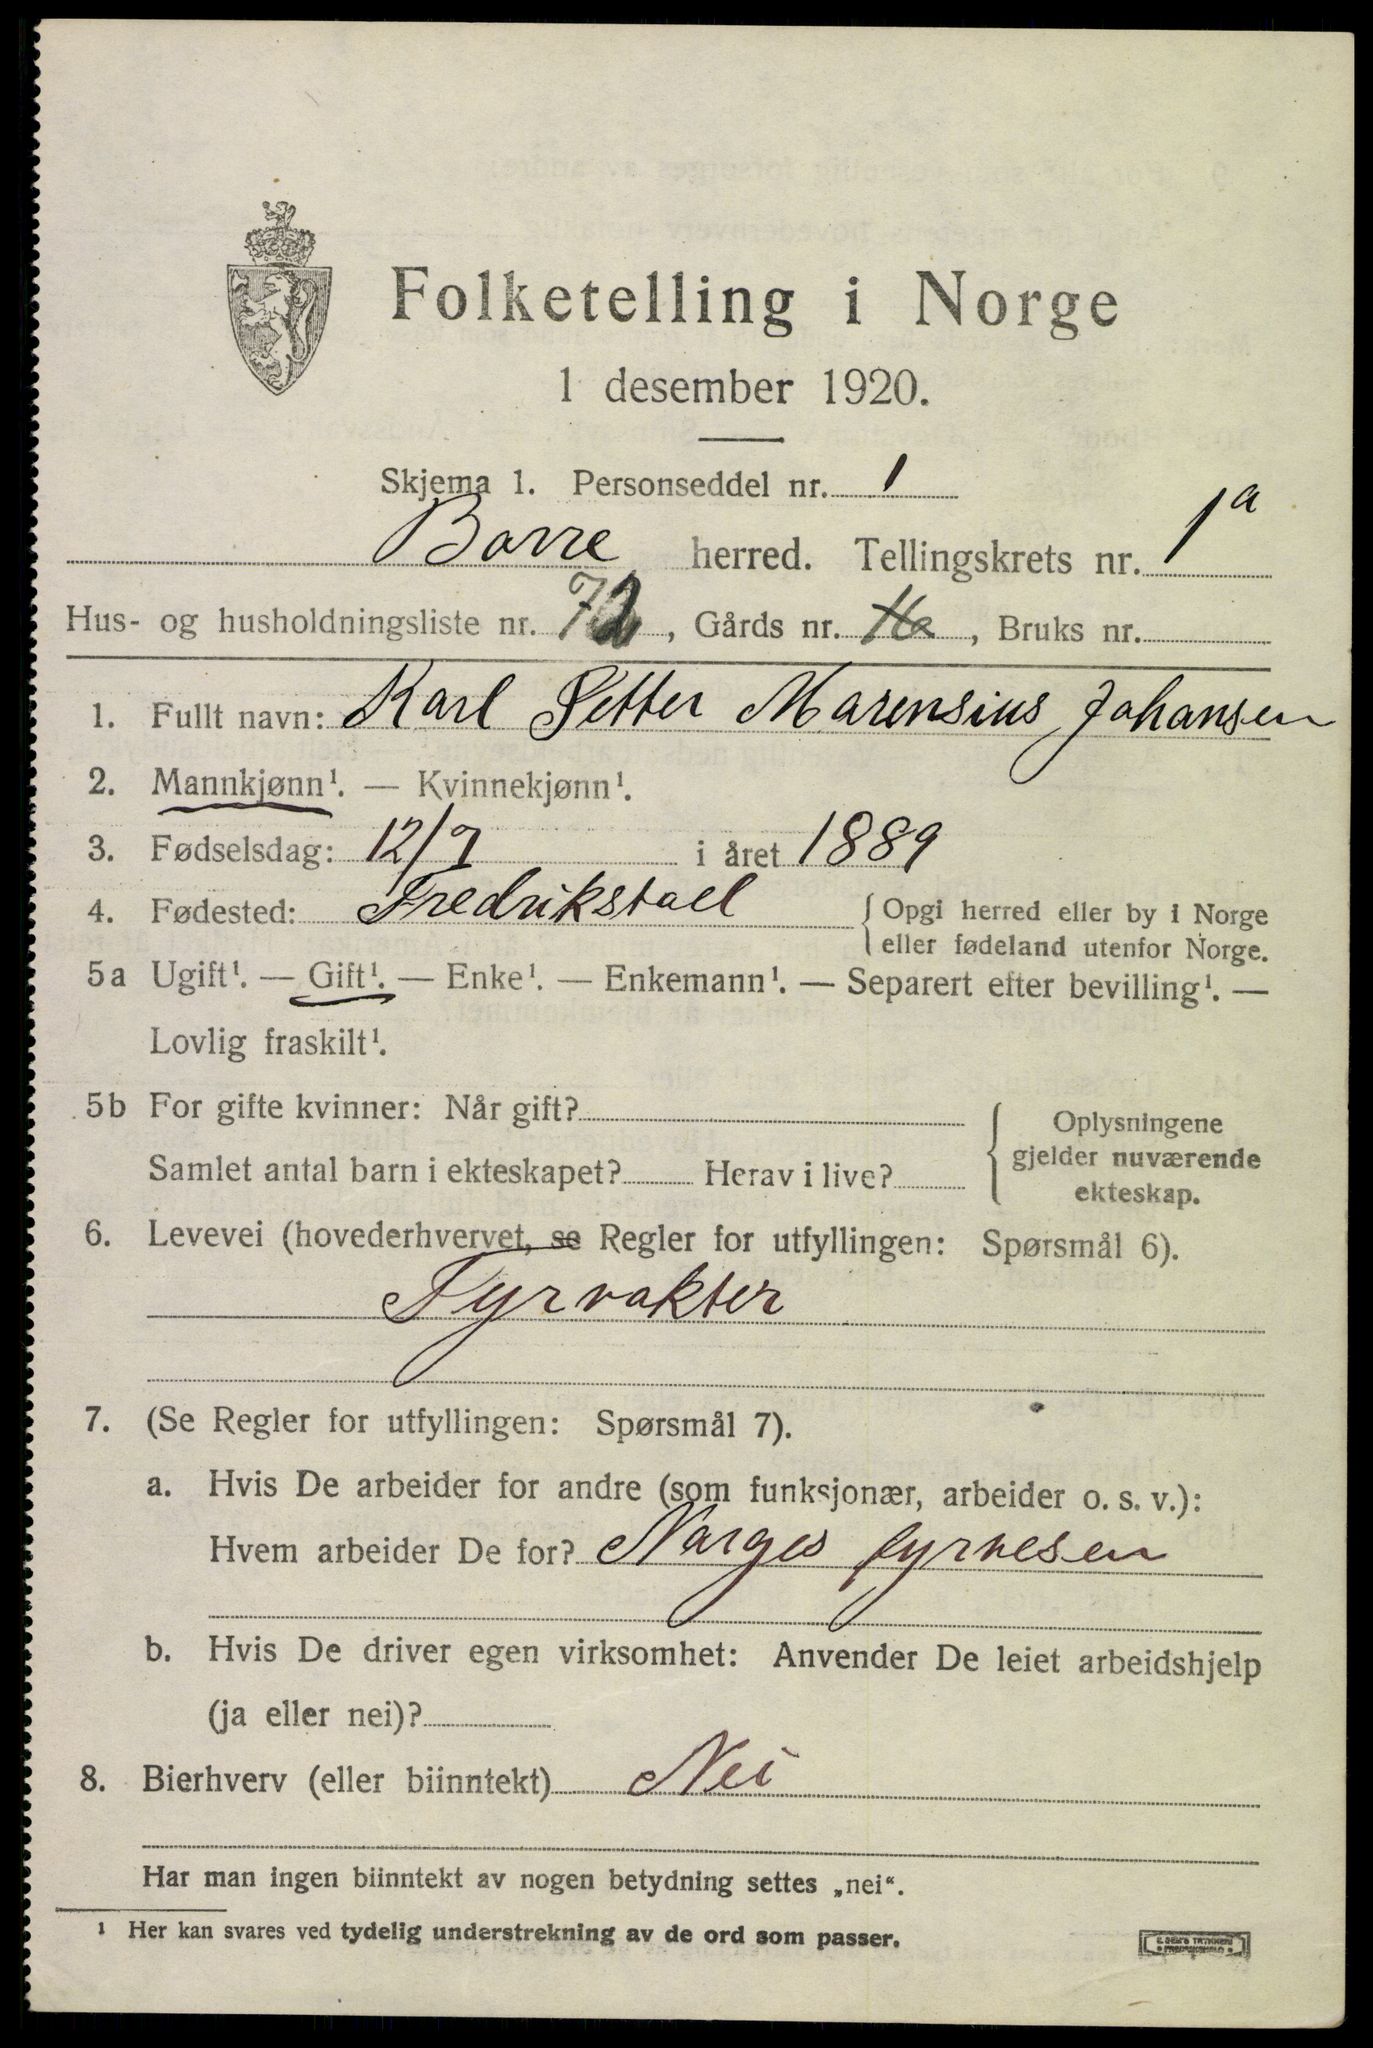 Folketelling i Norge
1 desember 1920.
Skjema 1. Personseddel nr. 1
Borre herred. Tellingskrets nr. 1a
Hus- og husholdningsliste nr. 72, Gårds nr. , Bruks nr.
1. Fullt navn: Karl Petter Marensius Johansen
2. Mannkjønn¹. — Kvinnekjønn¹.
3. Fødselsdag: 12/7 i året 1889
4. Fødested: Fredrikstad { Opgi herred eller by i Norge
eller fødeland utenfor Norge.
5a Ugift¹. — Gift¹. — Enke¹. — Enkemann¹. — Separert efter bevilling¹. —
Lovlig fraskilt¹.
5b For gifte kvinner: Når gift? { Oplysningene
gjelder nuværende
Samlet antal barn i ekteskapet? Herav i live?
ekteskap.
6. Levevei (hovederhvervet, se Regler for utfyllingen: Spørsmål 6).
Fyrvakter
7. (Se Regler for utfyllingen: Spørsmål 7).
a. Hvis De arbeider for andre (som funksjonær, arbeider o. s. v.):
Hvem arbeider De for? Norges fyrvesen
b. Hvis De driver egen virksomhet: Anvender De leiet arbeidshjelp
(ja eller nei)?
8. Bierhverv (eller biinntekt) Nei
Har man ingen biinntekt av nogen betydning settes „nei“.
¹ Her kan svares ved tydelig understrekning av de ord som passer.